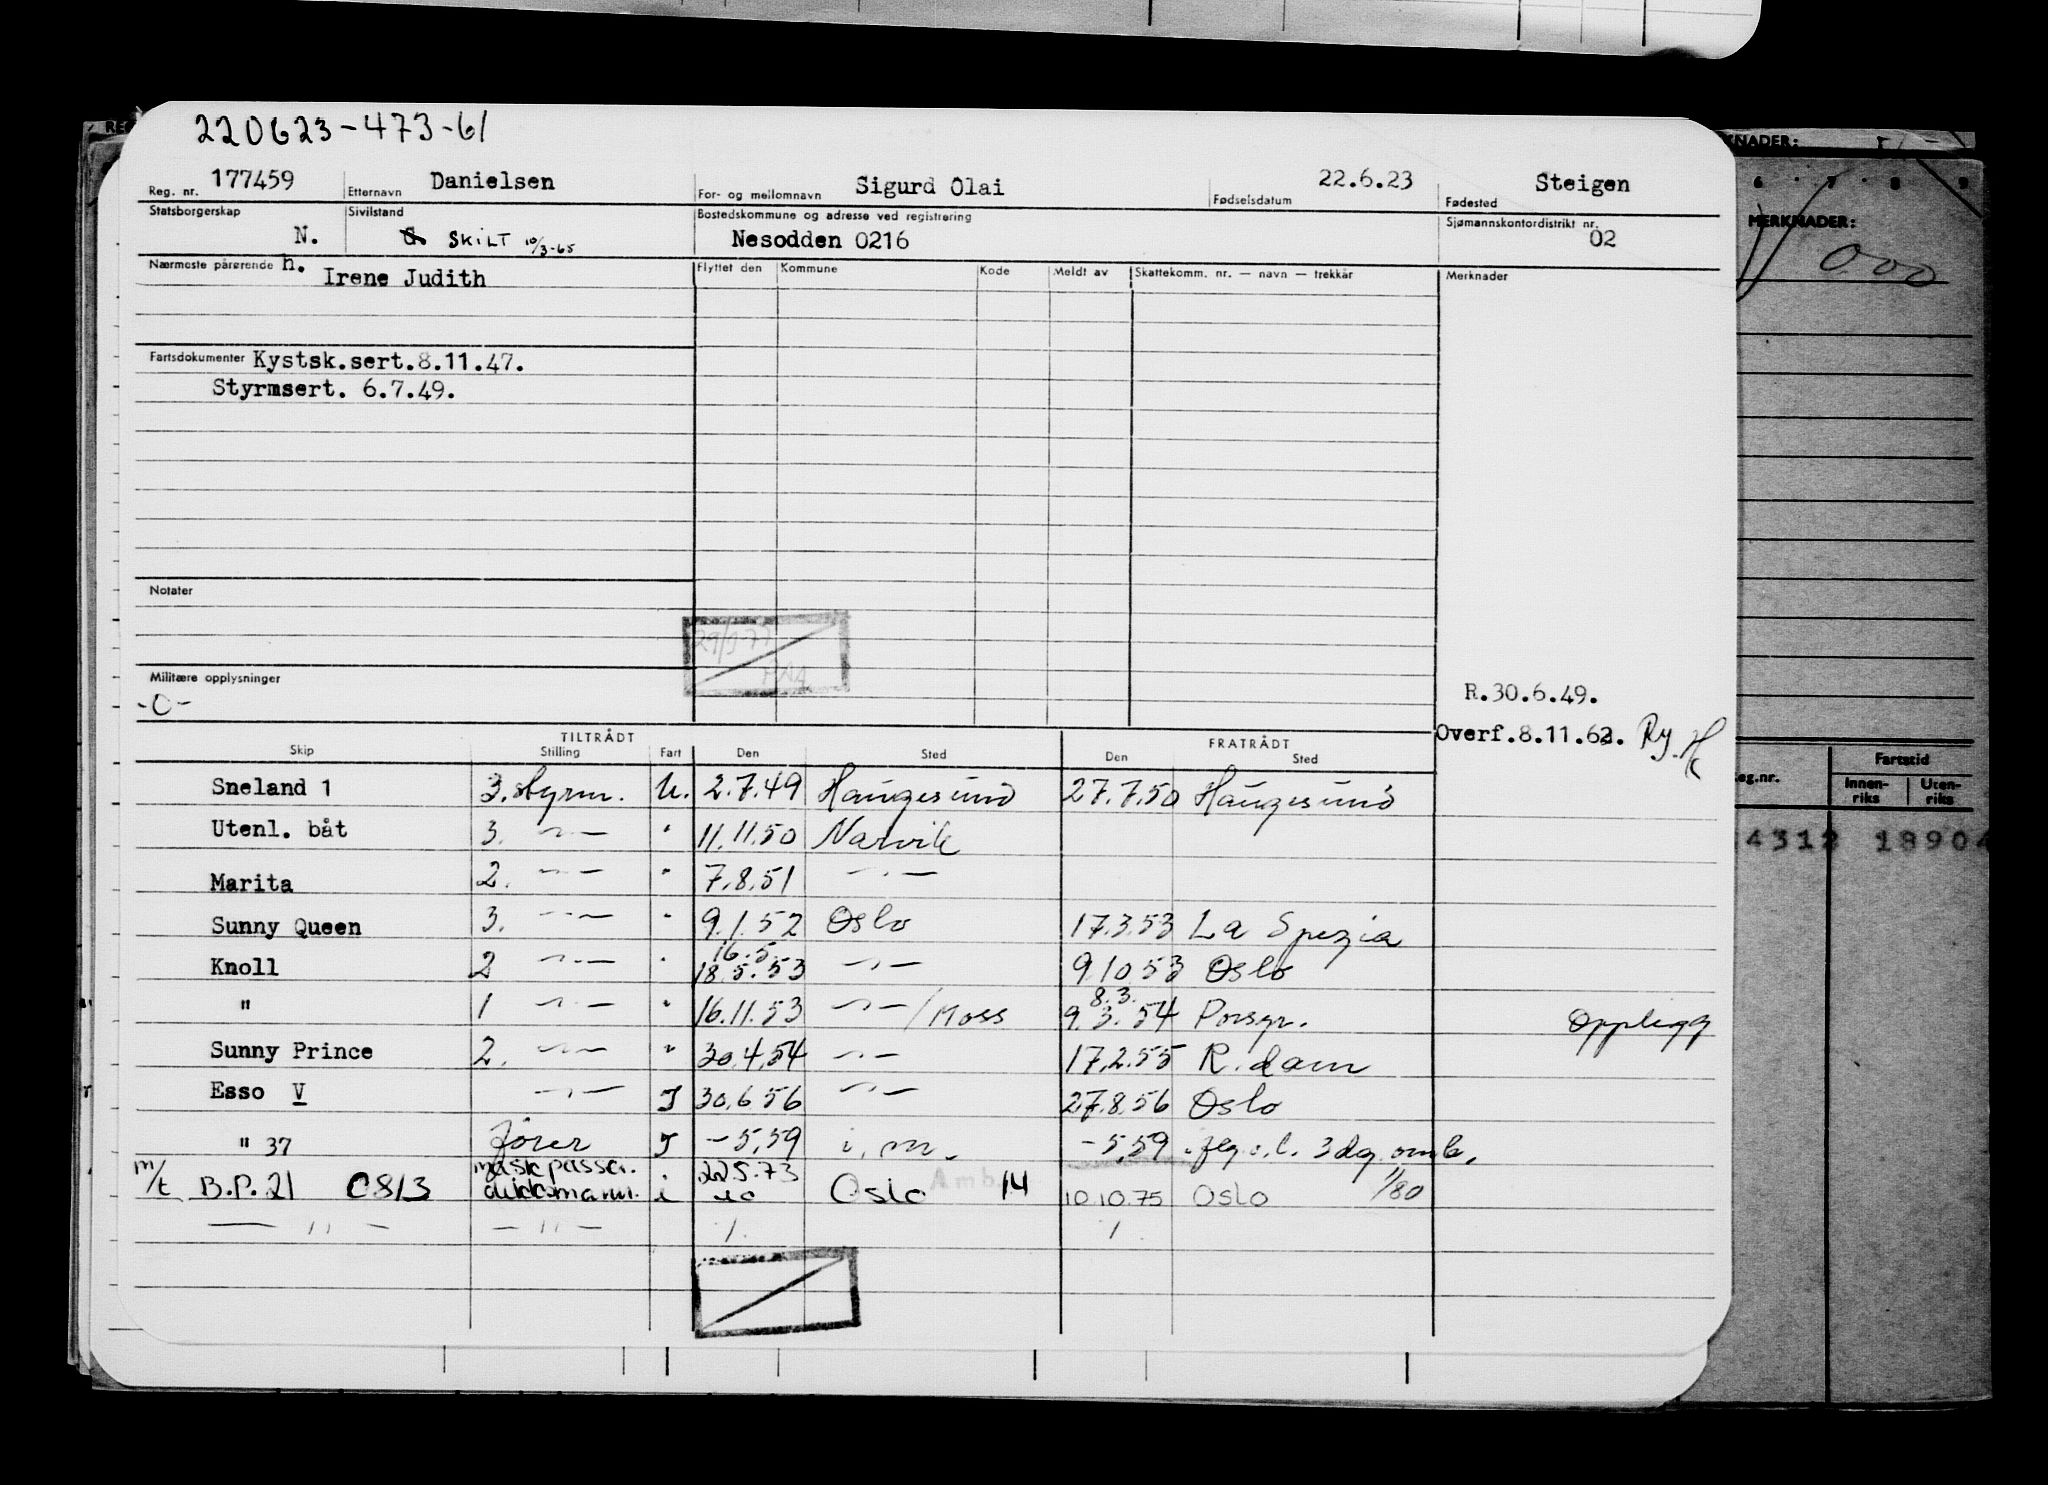 220623-473-61
Reg. nr. 177459 Etternavn Danielsen For- og mellomnavn Sigurd Olai 22.6.23 Fødselsdatum Steigen Fødested
Statsborgerskap N. Sivilstand G SKILT 10/3-65 Bostedskommune og adresse ved registrering Nesodden 0216 Sjømannskontordistrikt nr. 02
Nærmeste pårørende h. Irene Judith Flyttet den Kommune Kode Meldt av Skattekomm. nr. — navn — trekkår Merknader
Fartsdokumenter Kystsk.sert.8.11.47.
Styrmsert. 6.7.49.
Notater
Militære opplysninger
-0-
R.30.6.49.
Overf.8.11.62. Ry.
TILTRÅDT FRATRÅDT
Skip Stilling Fart Den Sted Den Sted
Sneland 1 3. styrm. U. 2.7.49 Haugesund 27.7.50 Haugesund
Utenl. båt 3. —"— " 11.11.50 Narvik
Marita 2. —"— " 7.8.51 —"—
Sunny Queen 3. —"— " 9.1.52 Oslo 17.3.53 La Spezia
16.5.
Knoll 2 —"— " 18.5.53 —"— 9.10.53 Oslo
8.3.
" 1 —"— " 16.11.53 —"—/Moss 9.3.54 Porsgr. Opplegg
Sunny Prince 2. —"— " 30.4.54 —"— 17.2.55 R.dam
Esso V —"— I 30.6.56 —"— 27.8.56 Oslo
" 37 fører I -5.59 i.m. -5.59 3dg. omb.
m/t B.P.21 0813 mask passer. dekksmann. i 22.5.73 Oslo 14 10.10.75 Oslo 1/80
—"— —"— / /
KNADER:
6 · 7 · 8 9
MERKNADER:
000
eg.nr. Fartstid
Innenriks Utenriks
4312 18904